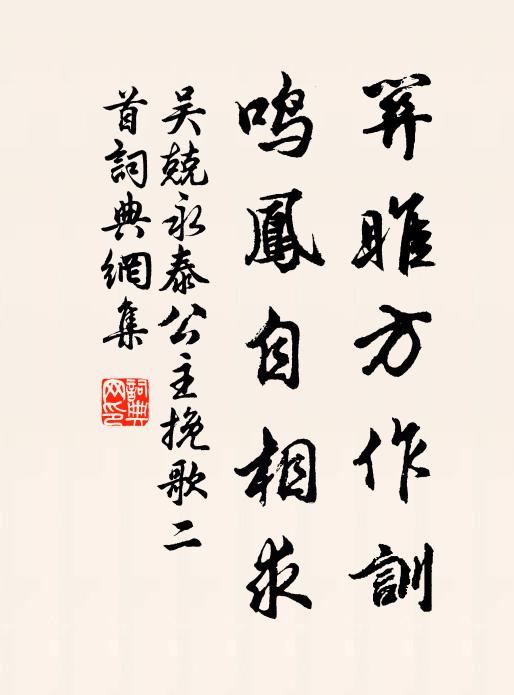 关雎方作訓
鸣鳳自相求
吴兢永泰公主挽歌二
首詞典網集
詞典
网印